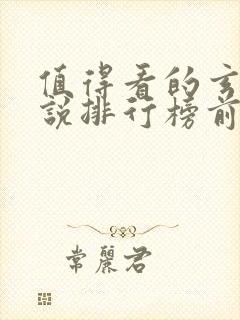 值得看的玄
說排行榜前
常麗君